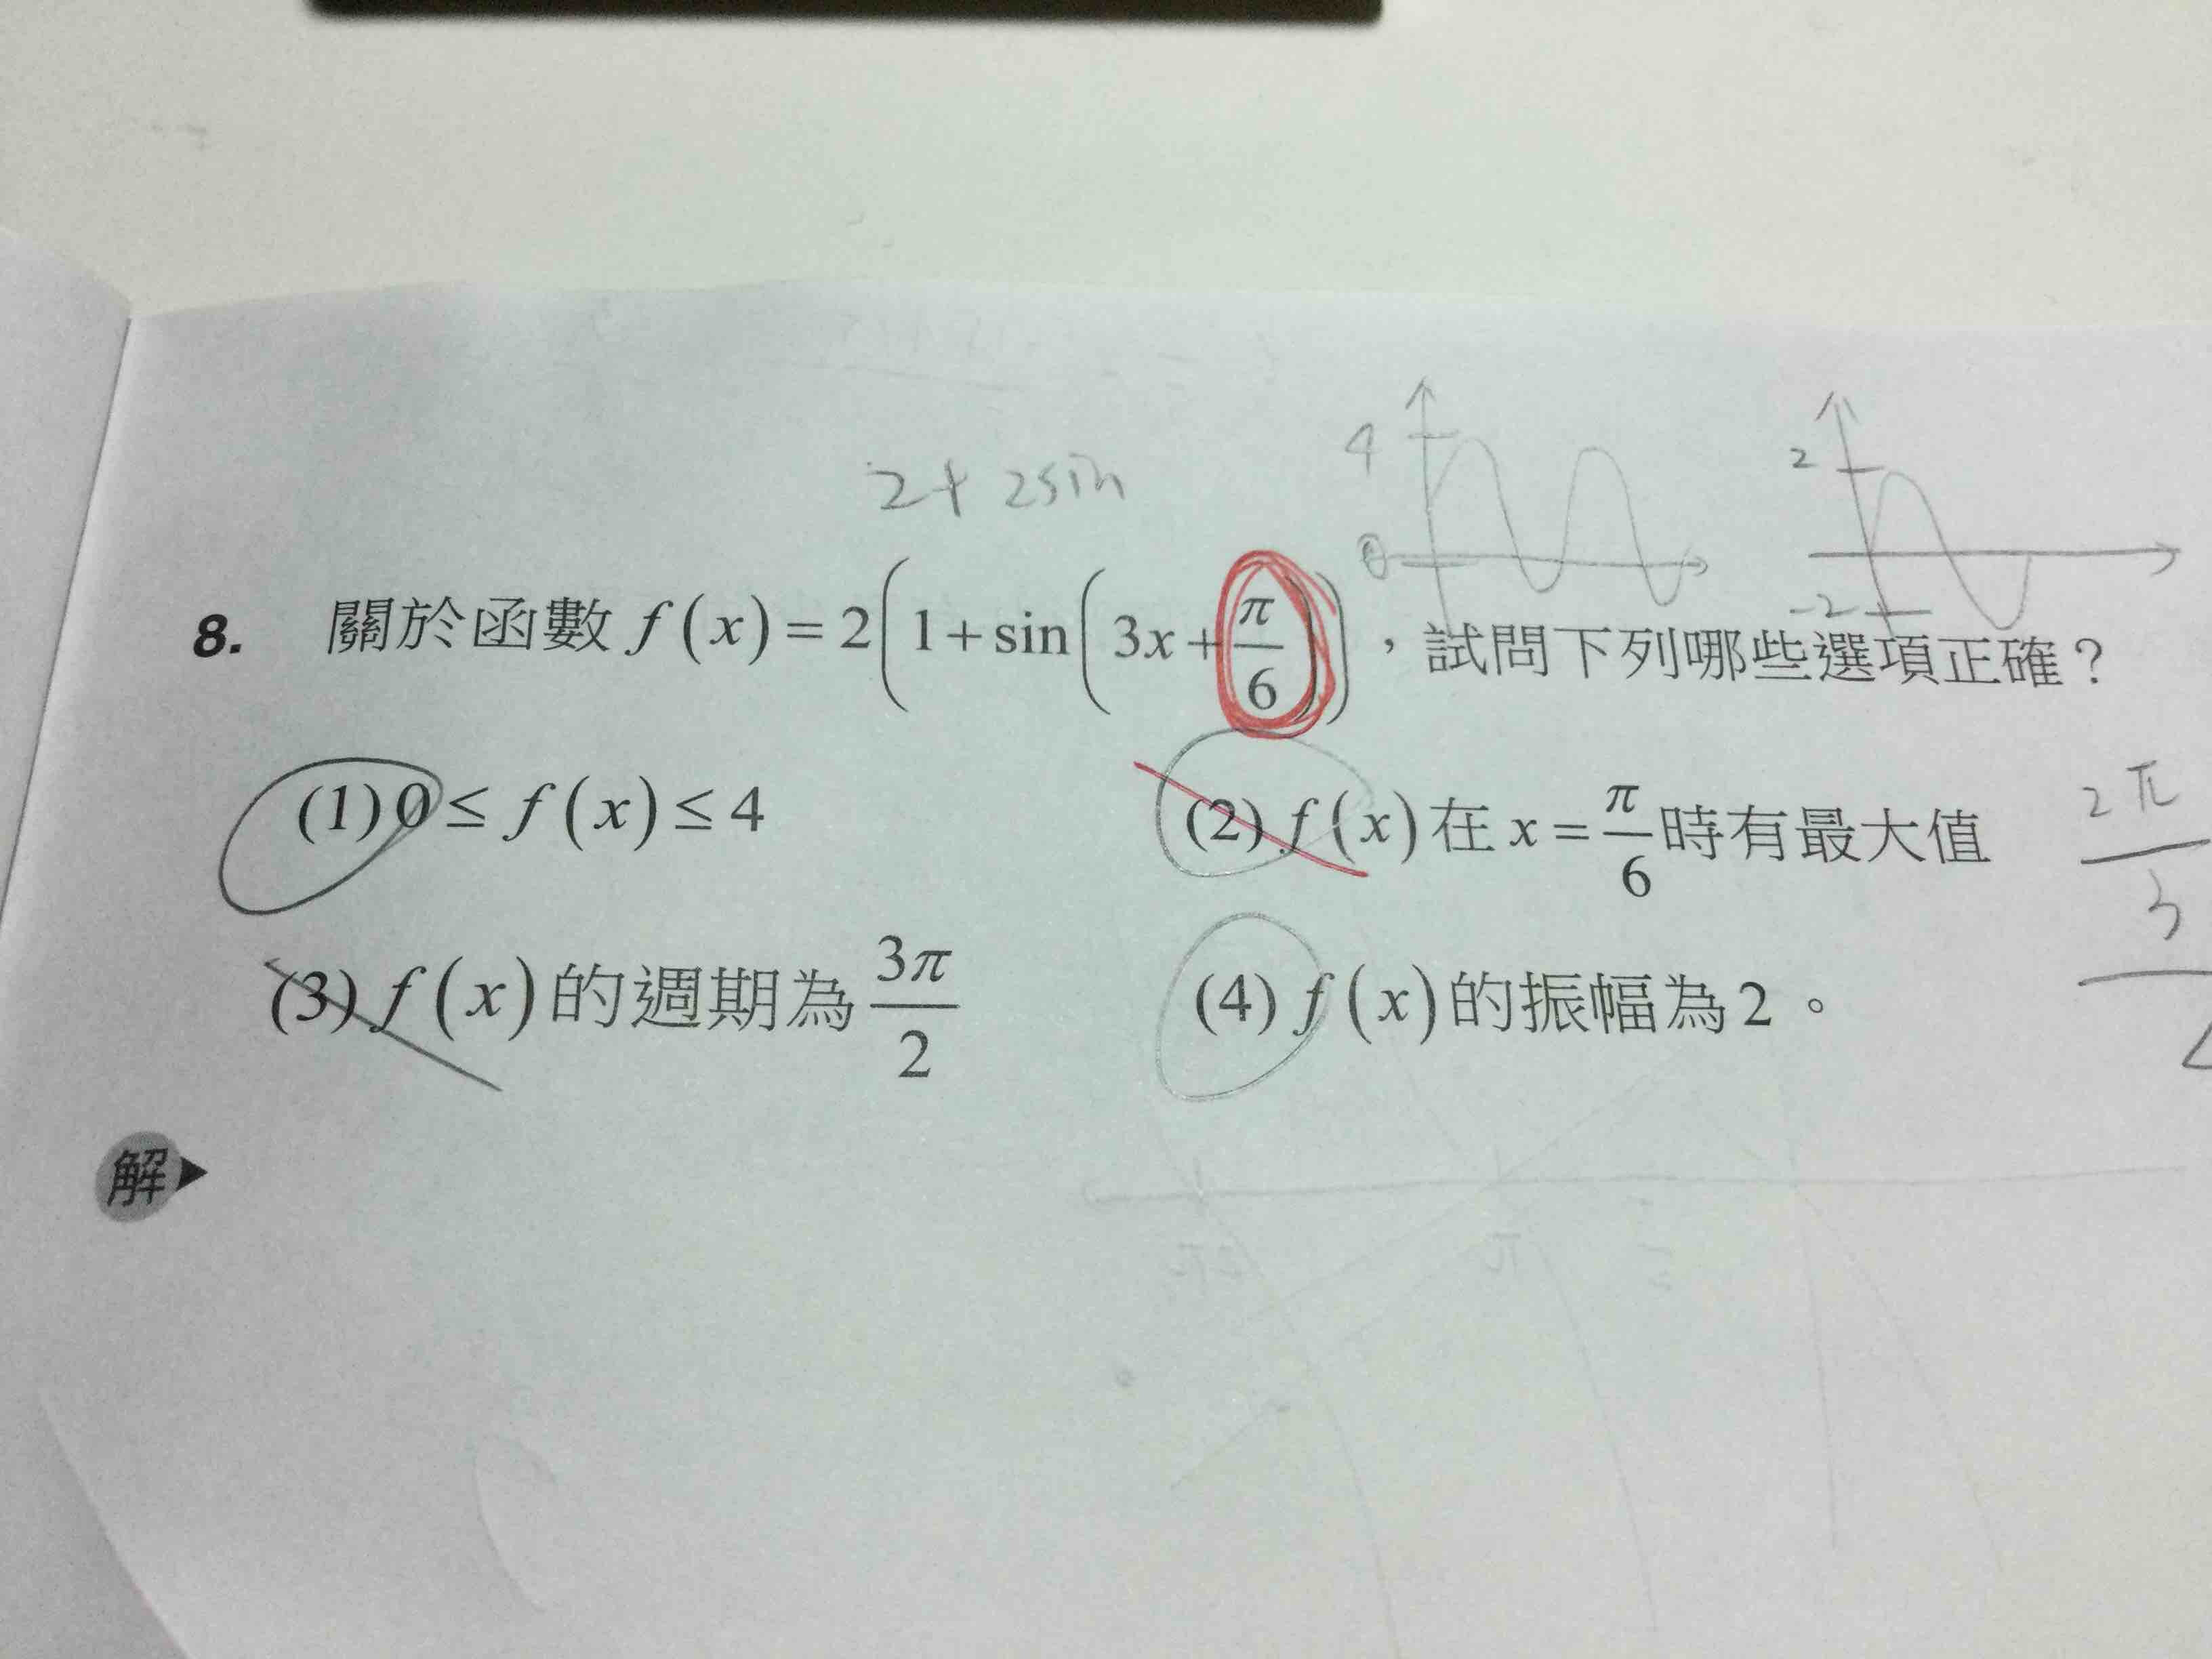 4
2
2+ 2sin
0
-2
8. 關於函數 f(x)=2(1+sin(3x+π/6)),試問下列哪些選項正確?
(1) 0≤f(x)≤4 (2) f(x)在 x=π/6 時有最大值
2π/3
(3) f(x)的週期為 3π/2 (4) f(x)的振幅為2。
解